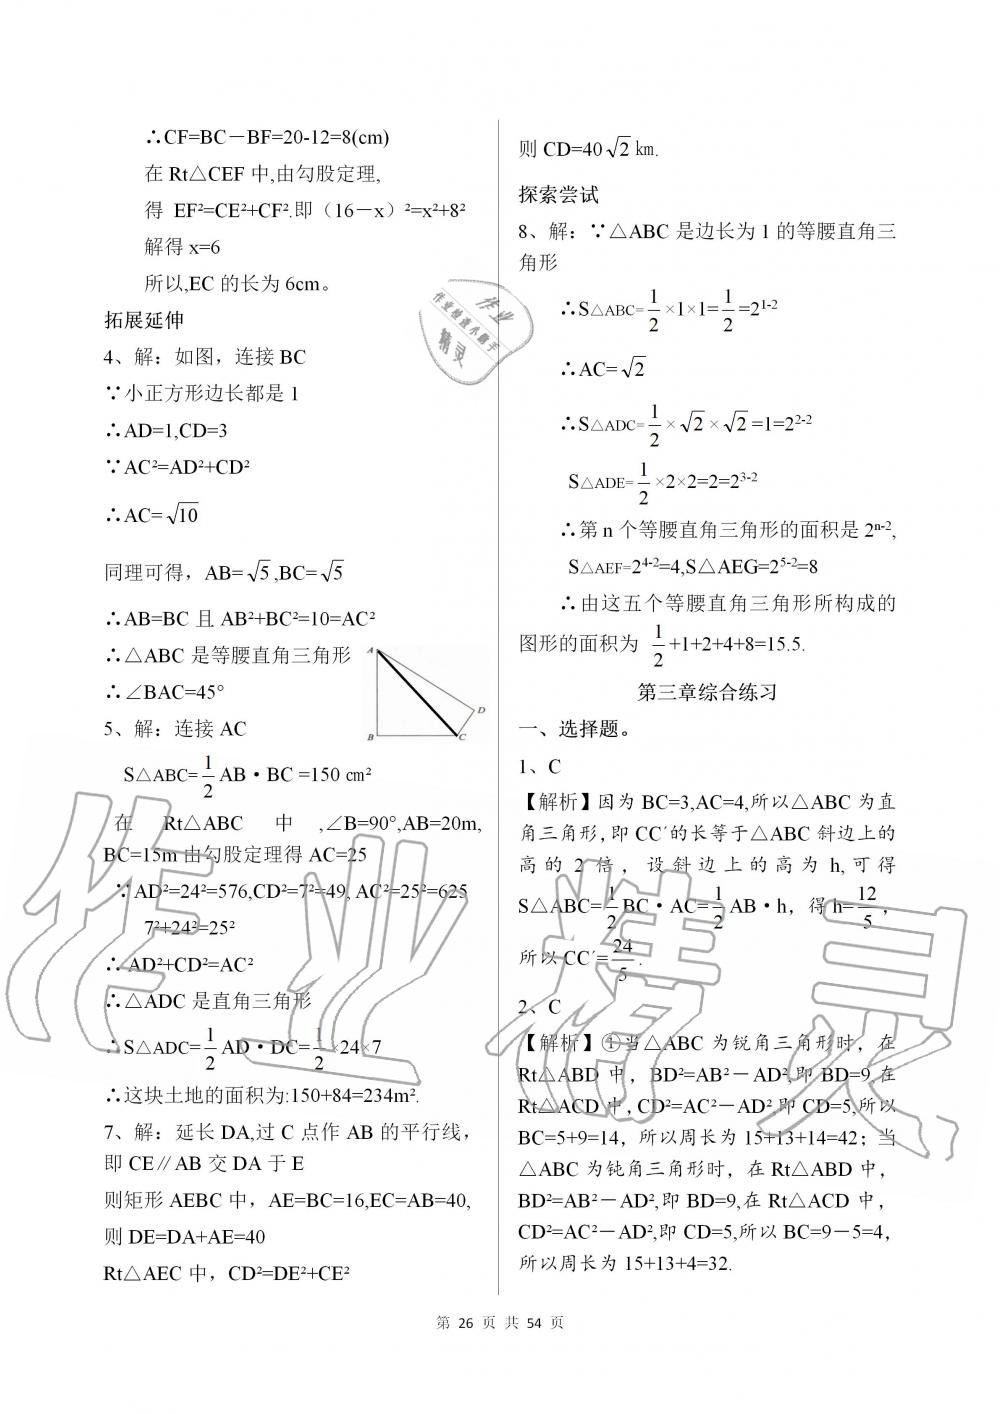 ∴CF=BC－BF=20-12=8(cm)
在 Rt△CEF 中,由勾股定理,
得 EF²=CE²+CF².即（16－x）²=x²+8²
解得 x=6
所以,EC 的长为 6cm。
拓展延伸
4、解：如图，连接 BC
∵小正方形边长都是 1
∴AD=1,CD=3
∵AC²=AD²+CD²
∴AC=√10
同理可得，AB=√5,BC=√5
∴AB=BC 且 AB²+BC²=10=AC²
∴△ABC 是等腰直角三角形
∴∠BAC=45°
A
D
B
C
5、解：连接 AC
S△ABC=1/2 AB·BC =150 ㎝²
在 Rt△ABC 中 ,∠B=90°,AB=20m,
BC=15m 由勾股定理得 AC=25
∵AD²=24²=576,CD²=7²=49, AC²=25²=625
7²+24²=25²
∴AD²+CD²=AC²
∴△ADC 是直角三角形
∴S△ADC=1/2 AD·DC=1/2×24×7
∴这块土地的面积为:150+84=234m².
7、解：延长 DA,过 C 点作 AB 的平行线，
即 CE∥AB 交 DA 于 E
则矩形 AEBC 中，AE=BC=16,EC=AB=40,
则 DE=DA+AE=40
Rt△AEC 中，CD²=DE²+CE²
则 CD=40√2 ㎞.
探索尝试
8、解：∵△ABC 是边长为 1 的等腰直角三
角形
∴S△ABC=1/2×1×1=1/2=2¹⁻²
∴AC=√2
∴S△ADC=1/2×√2×√2=1=2²⁻²
S△ADE=1/2×2×2=2=2³⁻²
∴第 n 个等腰直角三角形的面积是 2ⁿ⁻²,
S△AEF=2⁴⁻²=4,S△AEG=2⁵⁻²=8
∴由这五个等腰直角三角形所构成的
图形的面积为 1/2+1+2+4+8=15.5.
第三章综合练习
一、选择题。
1、C
【解析】因为 BC=3,AC=4,所以△ABC 为直
角三角形,即 CC′的长等于△ABC 斜边上的
高的 2 倍，设斜边上的高为 h,可得
S△ABC=1/2 BC·AC=1/2 AB·h，得 h=12/5，
所以 CC′=24/5.
2、C
【解析】①当△ABC 为锐角三角形时，在
Rt△ABD 中，BD²=AB²－AD²,即 BD=9,在
Rt△ACD 中,CD²=AC²－AD²,即 CD=5,所以
BC=5+9=14，所以周长为 15+13+14=42；当
△ABC 为钝角三角形时，在 Rt△ABD 中，
BD²=AB²－AD²,即 BD=9,在 Rt△ACD 中，
CD²=AC²－AD²,即 CD=5,所以 BC=9－5=4，
所以周长为 15+13+4=32.
第 26 页 共 54 页
作业精灵